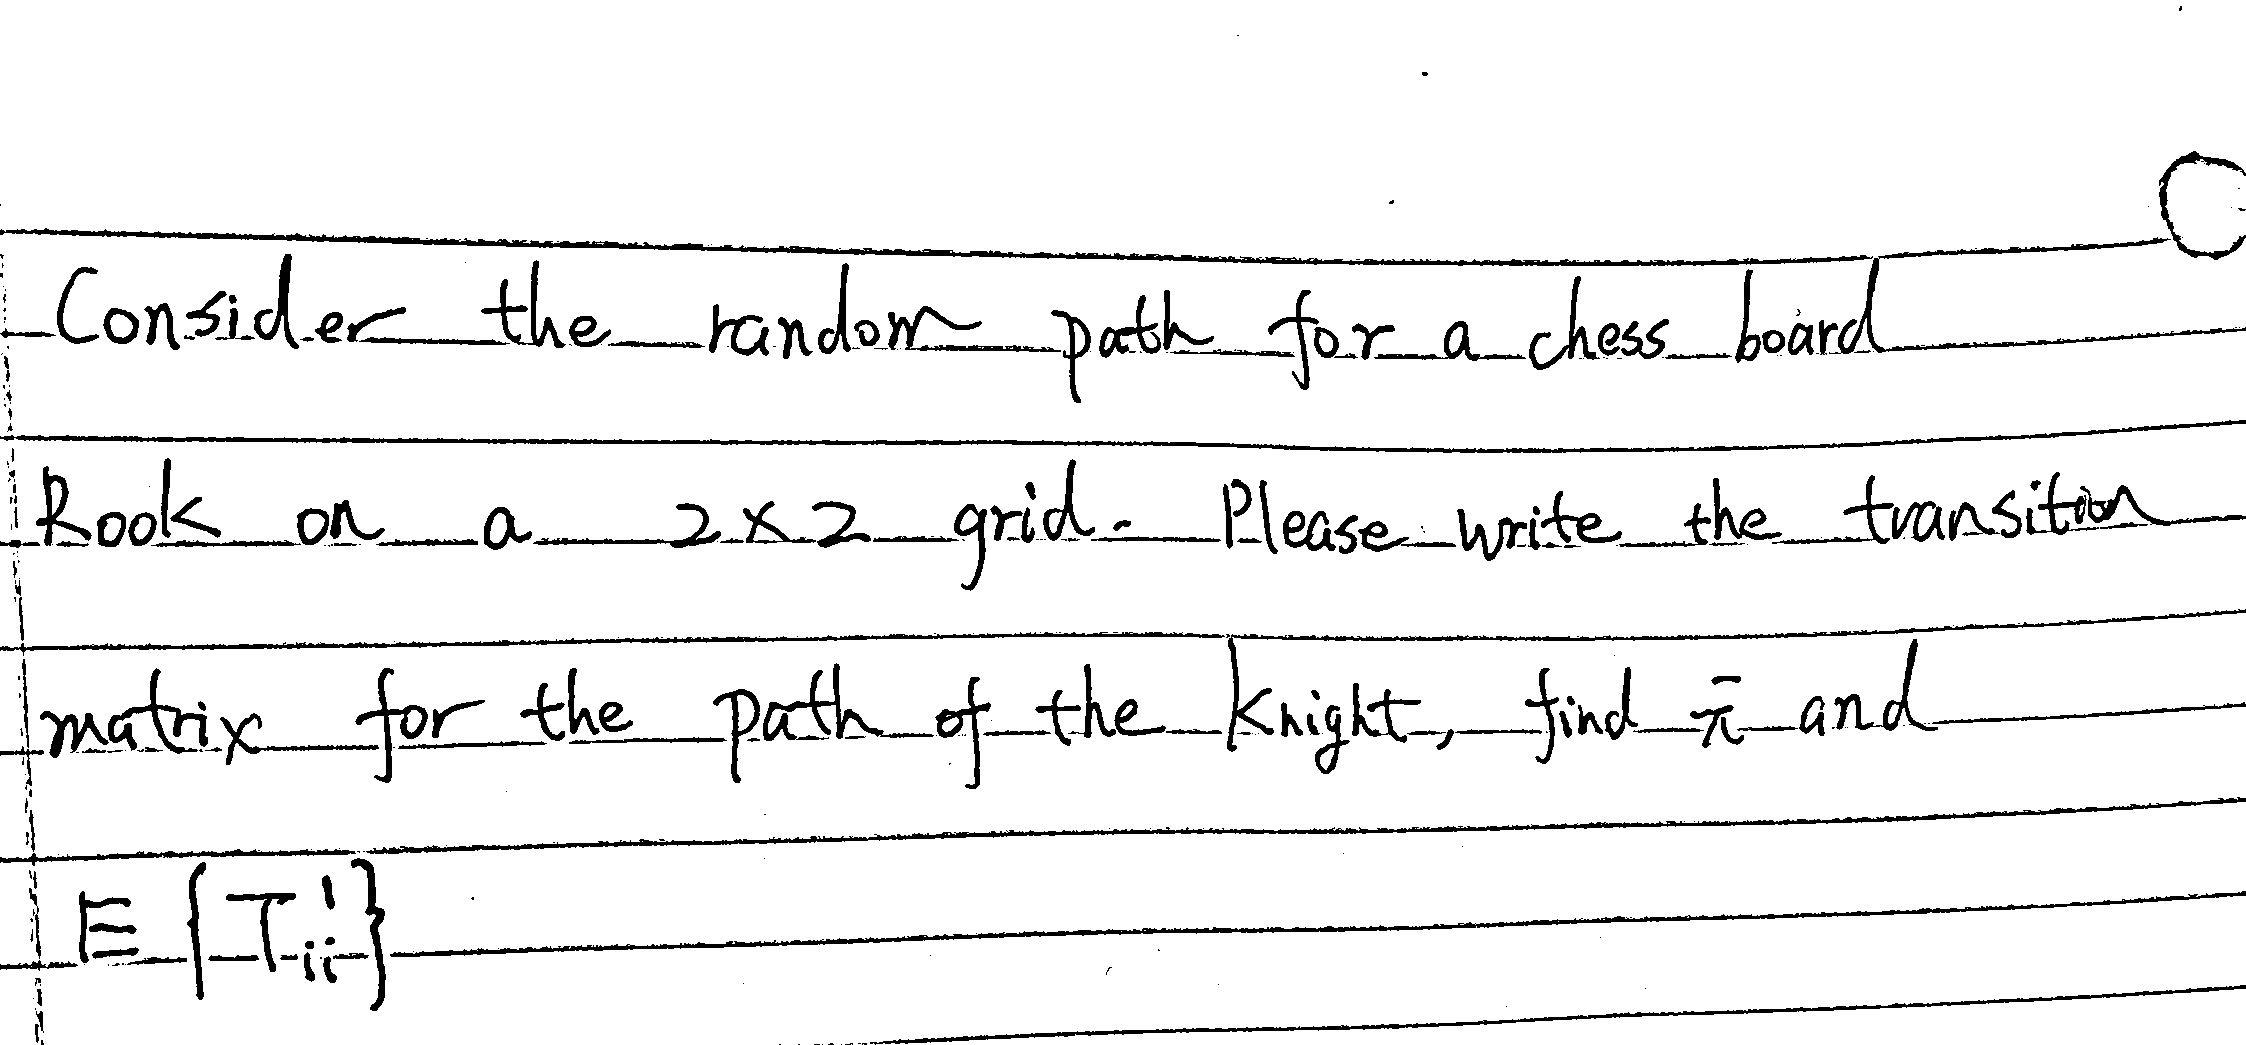 Consider the random path for a chess board
Rook on a 2×2 grid. Please write the transition
matrix for the path of the Knight, find π̄ and
E {T'ii}